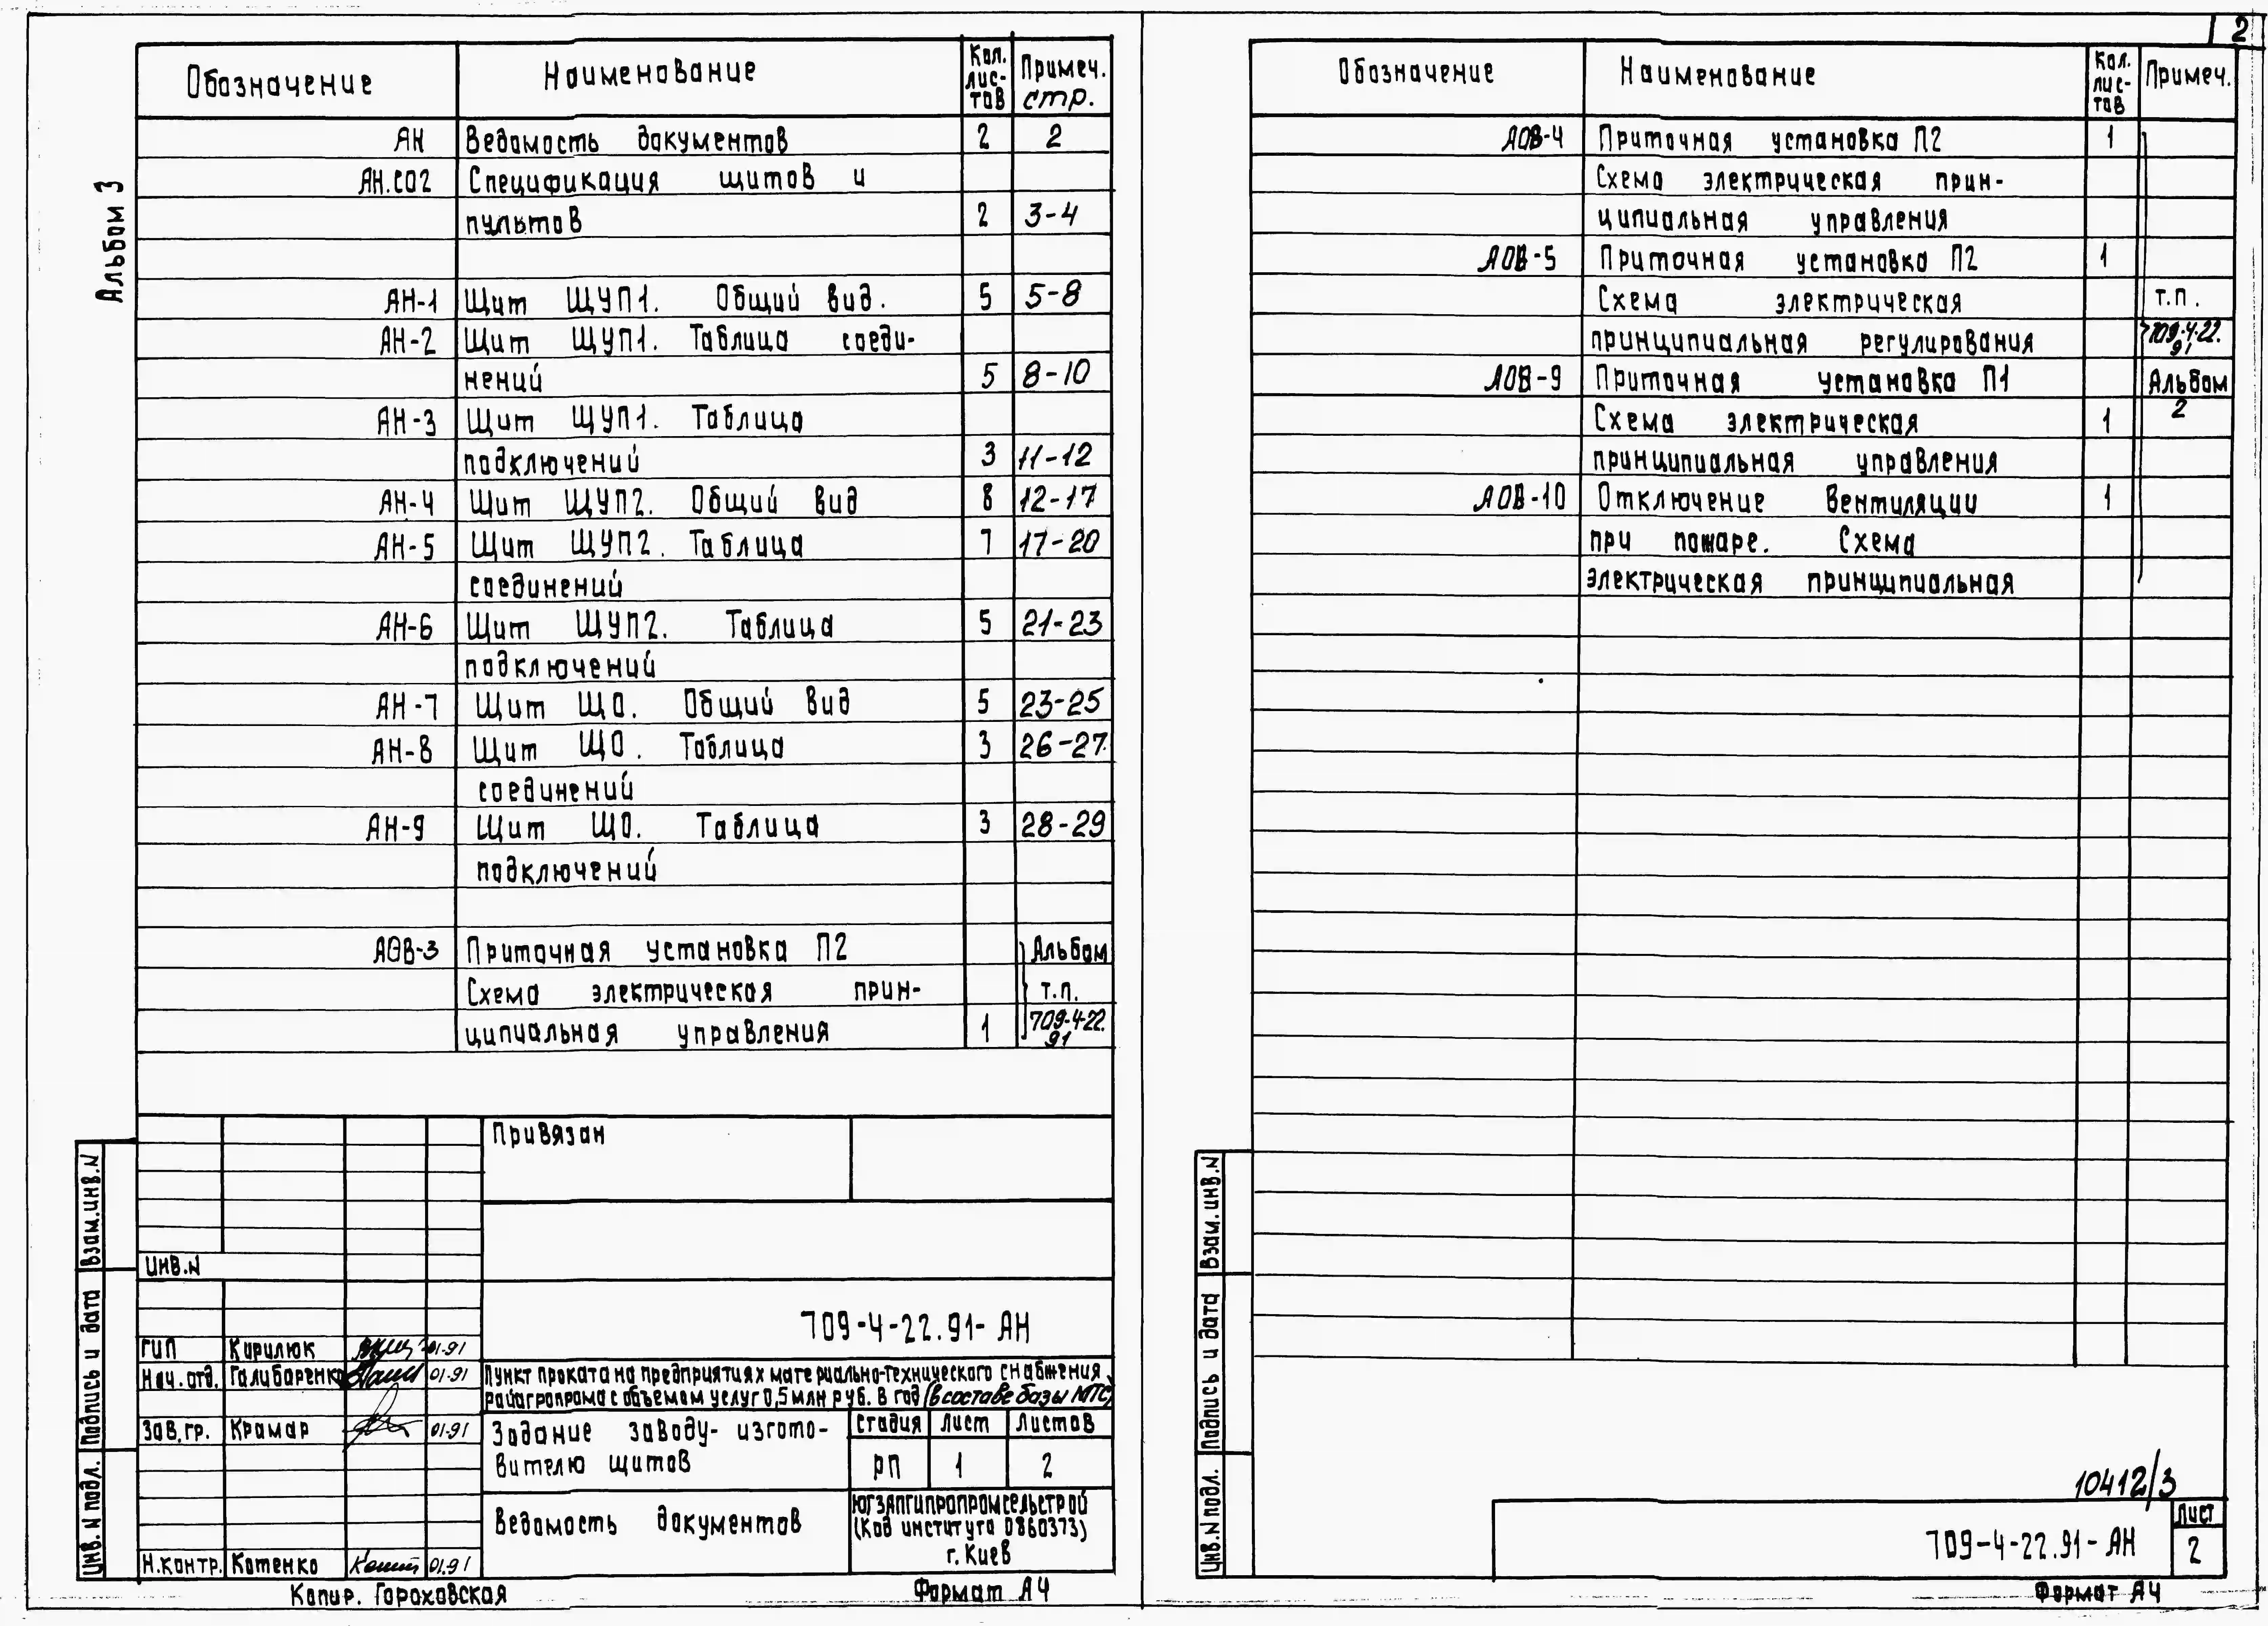 2
Альбом 3
Обозначение Наименование Кол. лис- тов Примеч. стр.
АН Ведомость документов 2 2
АН.СО2 Спецификация щитов и
пультов 2 3-4
АН-1 Щит ЩУП1. Общий вид. 5 5-8
АН-2 Щит ЩУП1. Таблица соеди-
нений 5 8-10
АН-3 Щит ЩУП1. Таблица
подключений 3 11-12
АН-4 Щит ЩУП2. Общий вид 8 12-17
АН-5 Щит ЩУП2. Таблица 7 17-20
соединений
АН-6 Щит ЩУП2. Таблица 5 21-23
подключений
АН-7 Щит ЩО. Общий вид 5 23-25
АН-8 Щит ЩО. Таблица 3 26-27
соединений
АН-9 Щит ЩО. Таблица 3 28-29
подключений
АОВ-3 Приточная установка П2 Альбом
Схема электрическая прин- т.п.
ципиальная управления 1 709-4-22.
91
Привязан
Инв.N
709-4-22.91- АН
ГИП Кирилюк 01-91
Нач.отд. Галибаренко 01-91
Зав.гр. Крамар 01-91
Н.контр. Котенко 01.91
Пункт проката на предприятиях материально-технического снабжения
райагропрома с объемом услуг 0,5 млн руб. в год (в составе базы МТС)
Задание заводу- изгото-
вителю щитов
Стадия Лист Листов
РП 1 2
Ведомость документов
ЮГЗАПГИПРОПРОМСЕЛЬСТРОЙ
(Код института 0860373)
г. Киев
Взам.инв.N
Подпись и дата
Инв.N подл.
Копир. Гороховская Формат А4
Обозначение Наименование Кол. лис- тов Примеч.
АОВ-4 Приточная установка П2 1
Схема электрическая прин-
ципиальная управления
АОВ-5 Приточная установка П2 1
Схема электрическая т.п.
принципиальная регулирования 709-4-22.
91
АОВ-9 Приточная установка П1 Альбом
Схема электрическая 1 2
принципиальная управления
АОВ-10 Отключение вентиляции 1
при пожаре. Схема
электрическая принципиальная
Взам.инв.N
Подпись и дата
Инв.N подл.
10412/3
709-4-22.91- АН
Лист
2
Формат А4